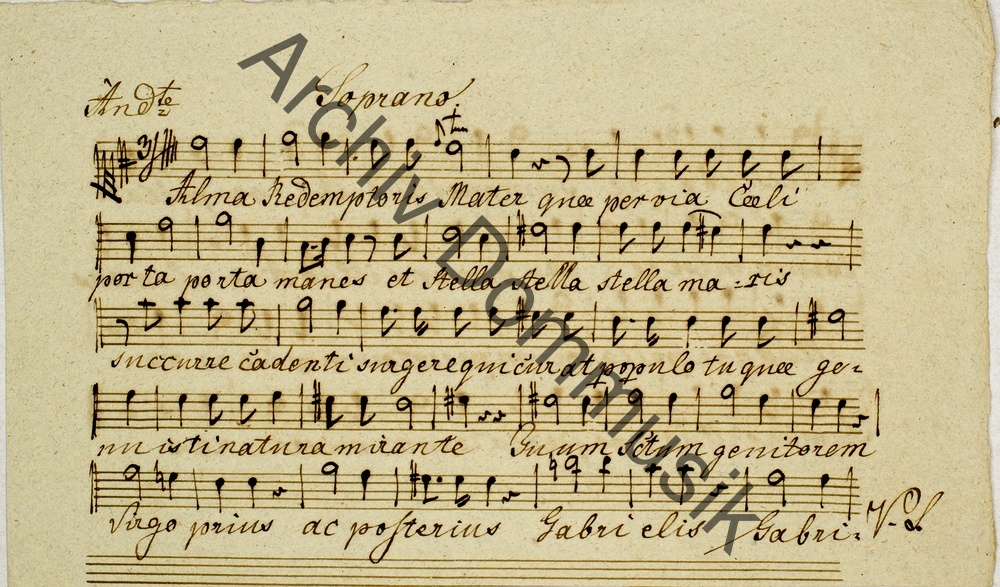 And.te Soprano.
Alma Redemptoris Mater quæ pervia Cœli
porta porta manes et stella stella stella ma=ris
succurre cadenti surgere qui curat populo tu quæ ge=
nuisti natura mirante Tuum Sctum genitorem
Virgo prius ac posterius Gabrielis Gabri=
V. S.
Archiv Dommusik